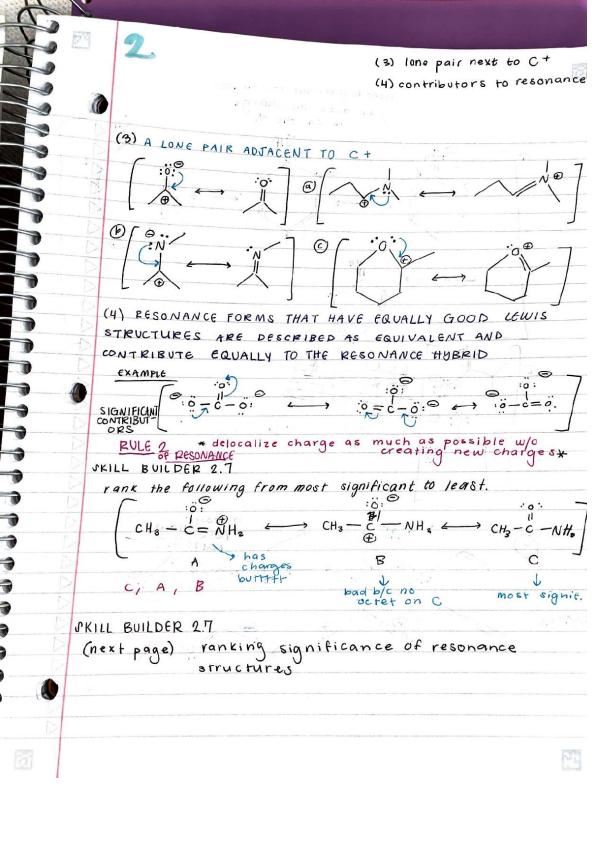 2
(3) lone pair next to C+
(4) contributors to resonance
(3) A LONE PAIR ADJACENT TO C+
(a)
(b)
(c)
(4) RESONANCE FORMS THAT HAVE EQUALLY GOOD LEWIS
STRUCTURES ARE DESCRIBED AS EQUIVALENT AND
CONTRIBUTE EQUALLY TO THE RESONANCE HYBRID
EXAMPLE
SIGNIFICANT
CONTRIBUT-
ORS
RULE 2 * delocalize charge as much as possible w/o
OF RESONANCE creating new charges*
SKILL BUILDER 2.7
rank the following from most significant to least.
CH₃ – C = NH₂ ⟷ CH₃ – C – NH₂ ⟷ CH₃ – C – NH₂
A B C
has
charges
bad b/c no
octet on C
most signif.
C, A, B
SKILL BUILDER 2.7
(next page) ranking significance of resonance
structures